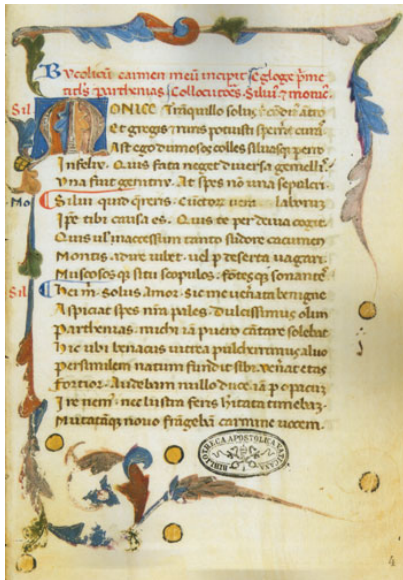 Bucolicū carmen meū incipit
titls Parthenias Collocutoēs. Silui' 7 monic'.
Sil
Monice Tranquillo solus
Et gregis 7 ruris potuisti spernere curā.
Ast ego dumosos colles siluasque pererro
Infelix. Quis fata neget diuersa gemellis.
Una fuit genitrix. At spes nō una sepulcri.
Mo
Silui quid quereris. Cūctorum uera laborum
Ipse tibi causa es. Quis te per deuia cogit.
Quis uel inaccessum tanto sudore cacumen
Montis adire iubet. uel per deserta uagari.
Muscososque situ scopulos. fōtesque sonantes.
Sil
Hei m. Solus Amor. Sic me uenata benigne
Aspiciat spes nr̄a pales. dulcissimus olim
Parthenias. michi iā puero cātare solebat
Hic ubi benacus uitrea pulcherrimus aluo
Persimilem natum fundit sibi. uenerat etas
Fortior. Audebam nullo duce iā per opacum
Ire nemus. nec lustra feris habitata timebaz.
Mutatāque nouo frāgebā carmine uocem.
BIBLIOTHECA APOSTOLICA VATICANA